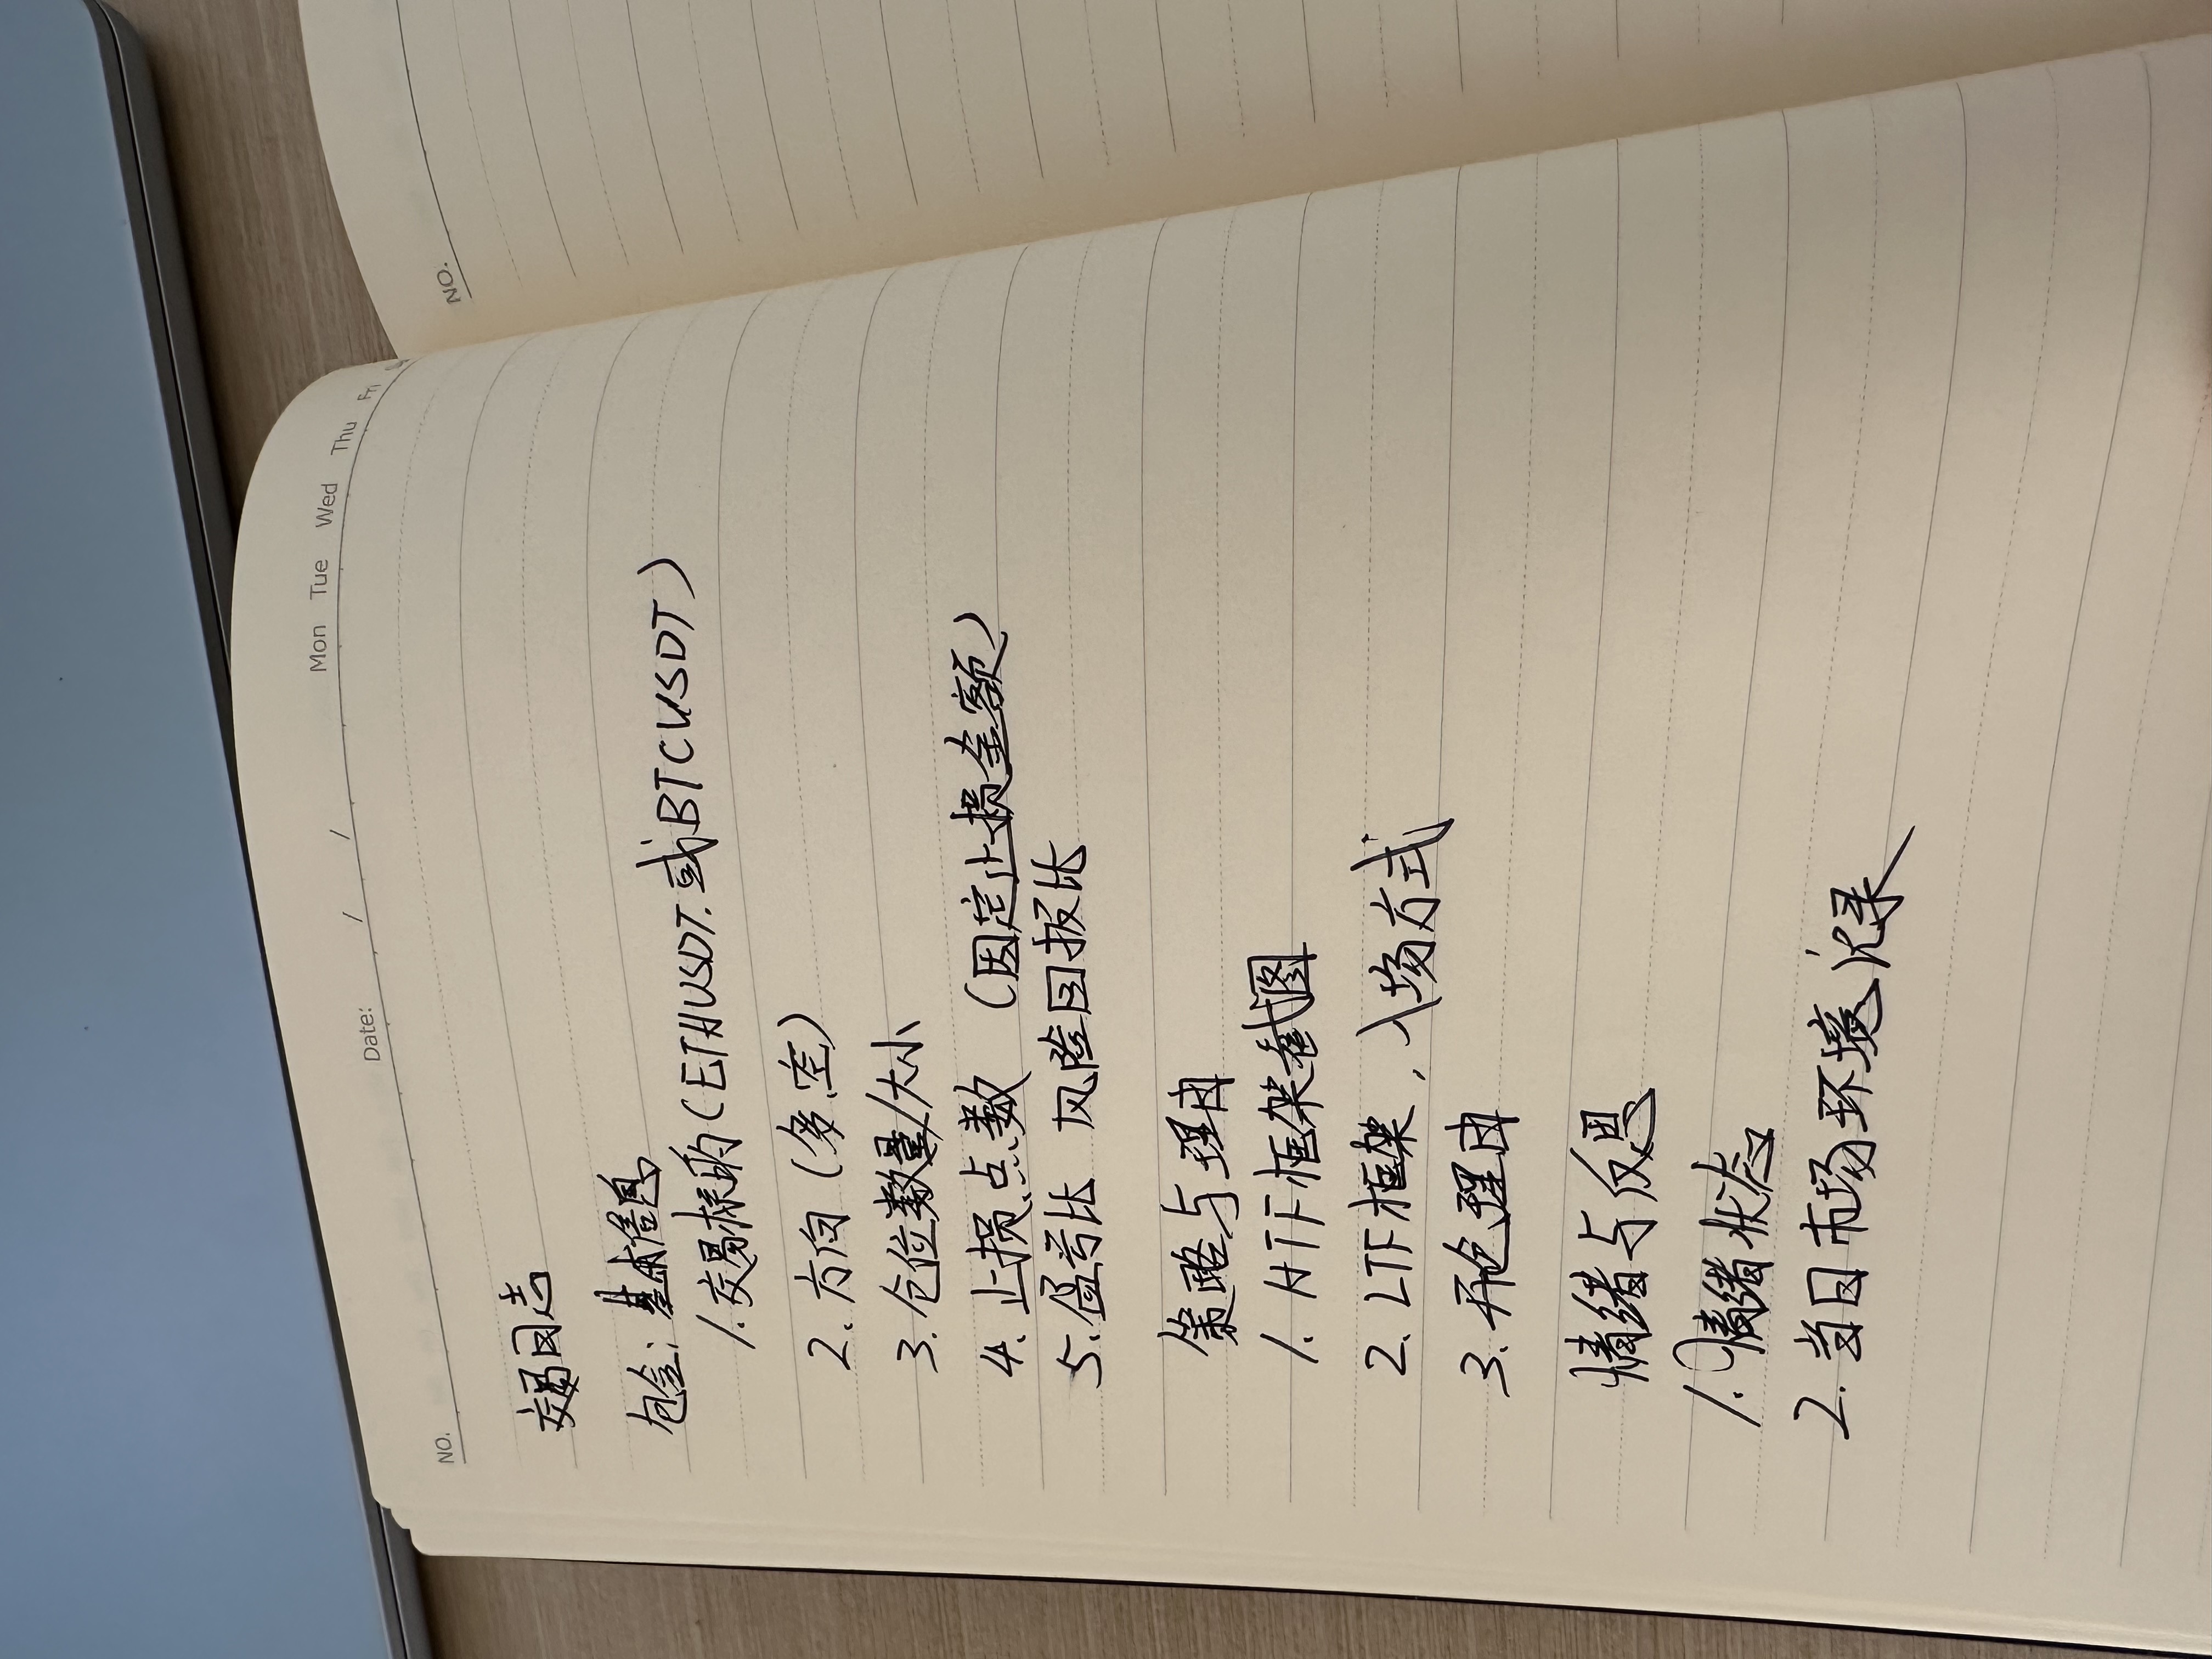 NO.
Date: / /
Mon Tue Wed Thu Fri
交易日志
包含: 基本信息
1.交易标的(ETHUSDT.或BTCUSDT)
2.方向(多.空)
3.仓位数量/大小
4.止损点数 (固定止损金额)
5.盈亏比 风险回报比
策略与理由
1.HTF框架截图
2.LTF框架,入场方式
3.开仓理由
情绪与反思
1.情绪状态
2.当日市场环境记录
NO.